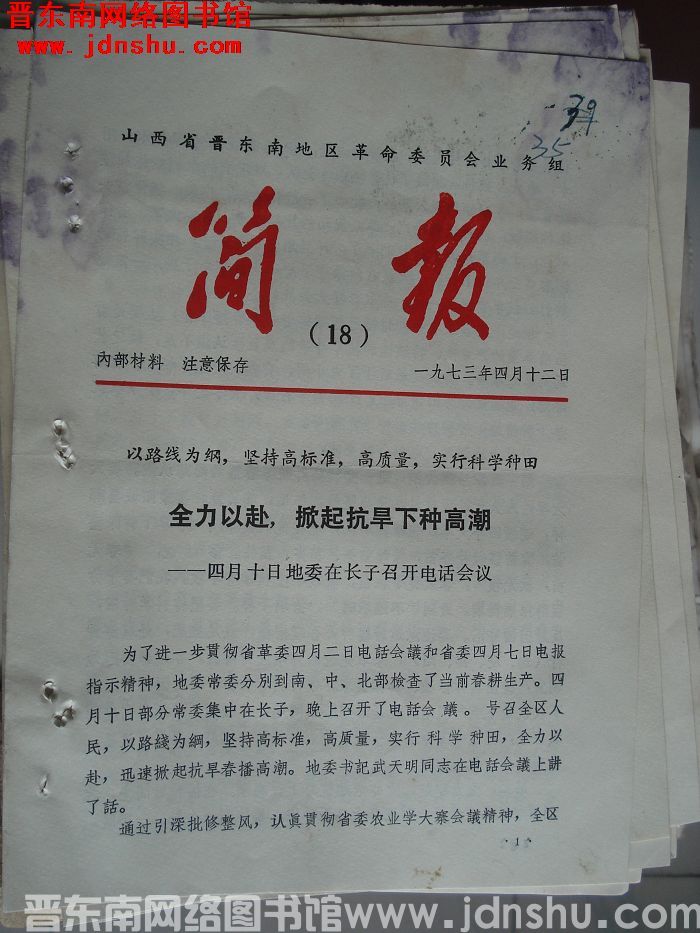 晋东南网络图书馆
www.jdnshu.com
39
35
山西省晋东南地区革命委员会业务组
简报
(18)
內部材料 注意保存
一九七三年四月十二日
以路线为纲，坚持高标准，高质量，实行科学种田
全力以赴，掀起抗旱下种高潮
——四月十日地委在长子召开电话会议
为了进一步貫彻省革委四月二日电話会議和省委四月七日电报
指示精神，地委常委分別到南、中、北部檢查了当前春耕生产。四
月十日部分常委集中在长子，晚上召开了电話会議。号召全区人
民，以路綫为綱，坚持高标准，高质量，实行科学种田，全力以
赴，迅速掀起抗旱春播高潮。地委书記武天明同志在电話会議上講
了話。
通过引深批修整风，认眞貫彻省委农业学大寨会議精神，全区
·1·
晋东南网络图书馆www.jdnshu.com